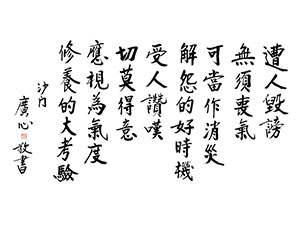 遭人毀謗
無須喪氣
可當作消災
解怨的好時機
受人讚嘆
切莫得意
應視為氣度
修養的大考驗
沙門
廣心敬書